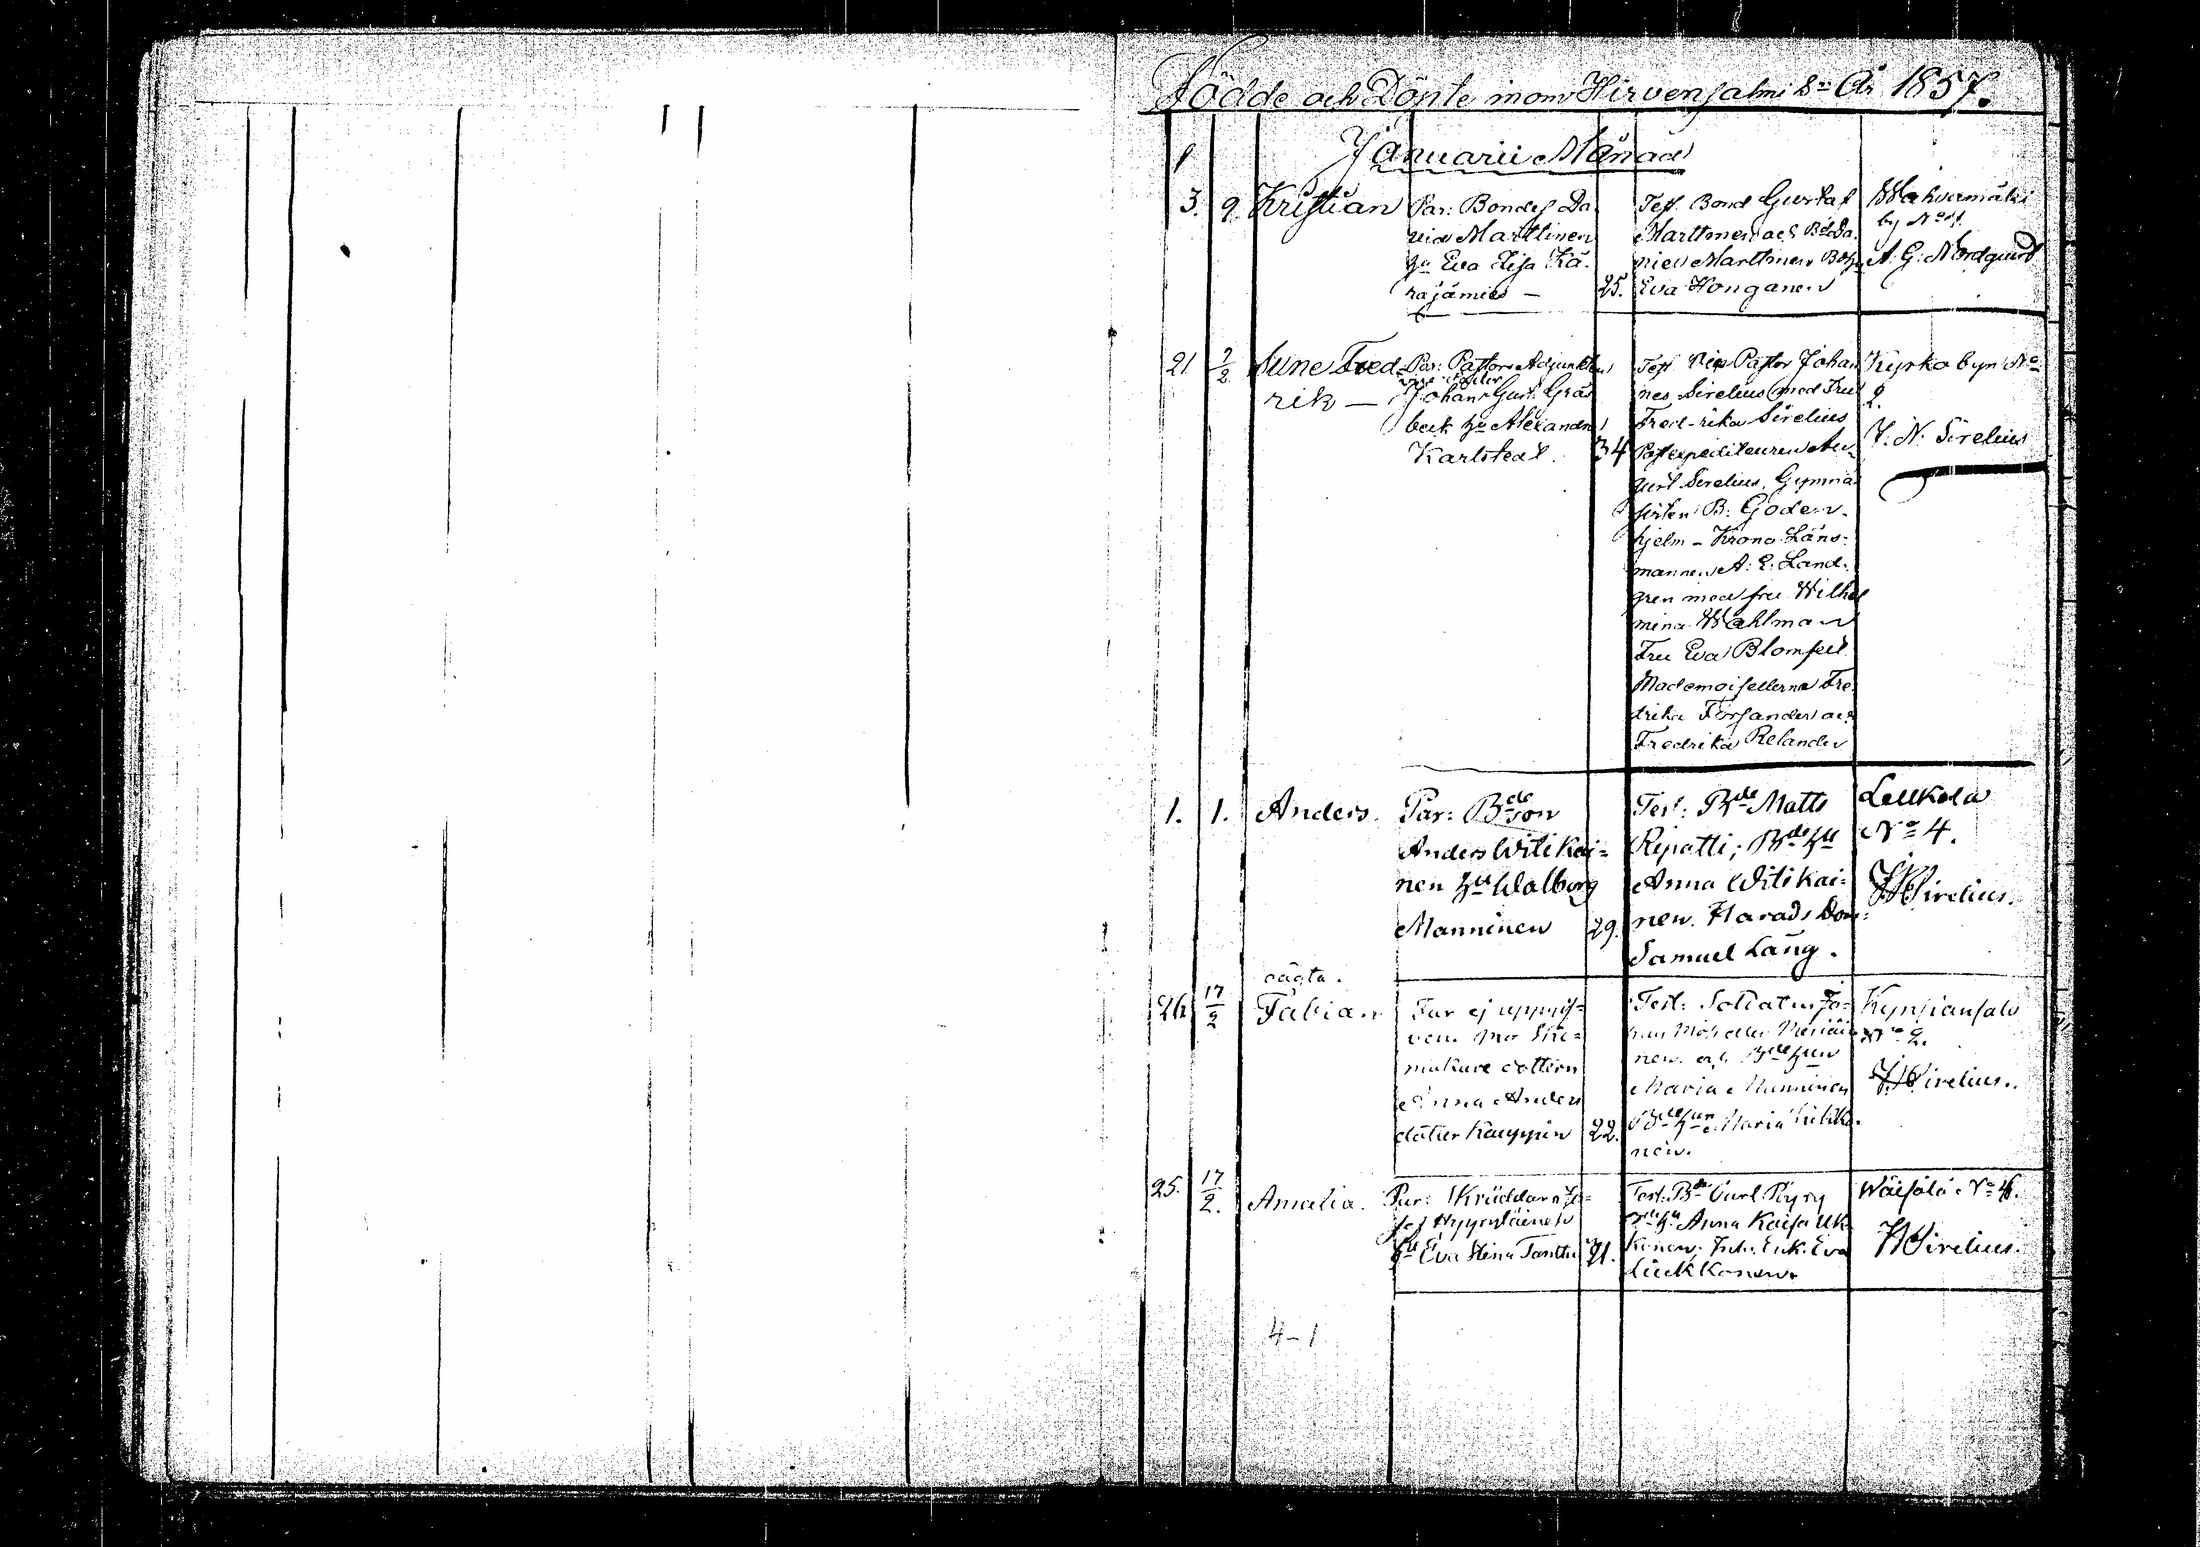 Födde och Döpte inom Hirvensalmi Sn År 1857.
Januarii Månad
3. 9. Kristian
Par: Bondes Da
vid Marttinen
hu Eva Lisa Kä-
räjämies — 25.
Test. Bond Gustaf
Marttinen och Bde Da
niel Marttinen Bdehu
Eva Honganen
Wahvamäki
by No 1.
A. G. Nordqund
21 7/2 Sune Fred-
rik —
Par: Pastors Adjunkten
Johan Gust. Gräs
beck hu Alexandra
Karlstedt. 34
Test Vice Pastor Johan
nes Sirelius med Fru
Fred-rika Sirelius
Postexpediteuren Au-
gust Sirelius, Gymna
sisten B: Goden-
hjelm - Krono Läns-
mannen A: E: Land-
gren med fru Wilhel
mina Wahlman
Fru Eva Blomfelt
Mademoisellerna Fre
drika Forsander och
Fredrika Relander
Kyrko byn No
2.
J. N. Sirelius
1. 1. Anders.
Par: Bde Son
Anders Witikai=
nen hu Walborg
Manninen 29.
Test: Bde Matts
Ripatti; Bde hu
Anna Witikai=
nen. Härads Dom=
Samuel Lang.
Leukola
No 4.
JN Sirelius.
oägta.
26 17/2 Fabian
Far ej uppgif=
ven. Mor
makare dottern
Anna Anders
dotter Kauppin 22.
Test: Soldaten Jo=
han
nen. och Bde hun
Maria Manninen
Bde hun Maria
nen.
Kynsiansalo
No 2.
JN Sirelius.
25. 17/2. Amalia.
Par: Skräddarn Jo=
sef Hyyryläinen
hu Eva Stina Tanttu 21.
Test: Bde Carl Pyry
Bde hu Anna Kaisa Uk
konen. Enk. Eva
Liukkonen.
Wäisälä No 4.
JN Sirelius.
4-1